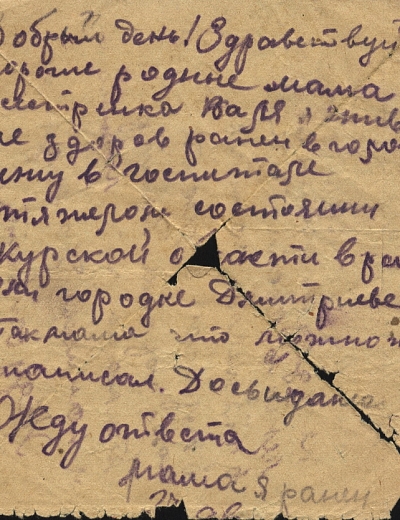 Добрый день! Здравствуй
родные мама
сестренка Валя я жив
не здоров ранен в гор
лежу в госпитале
тяжелом состоянии
Курской области в рай
городке Дмитриеве
Так мама что можно
написал. Досвидания
Жду ответа
мама я ранен